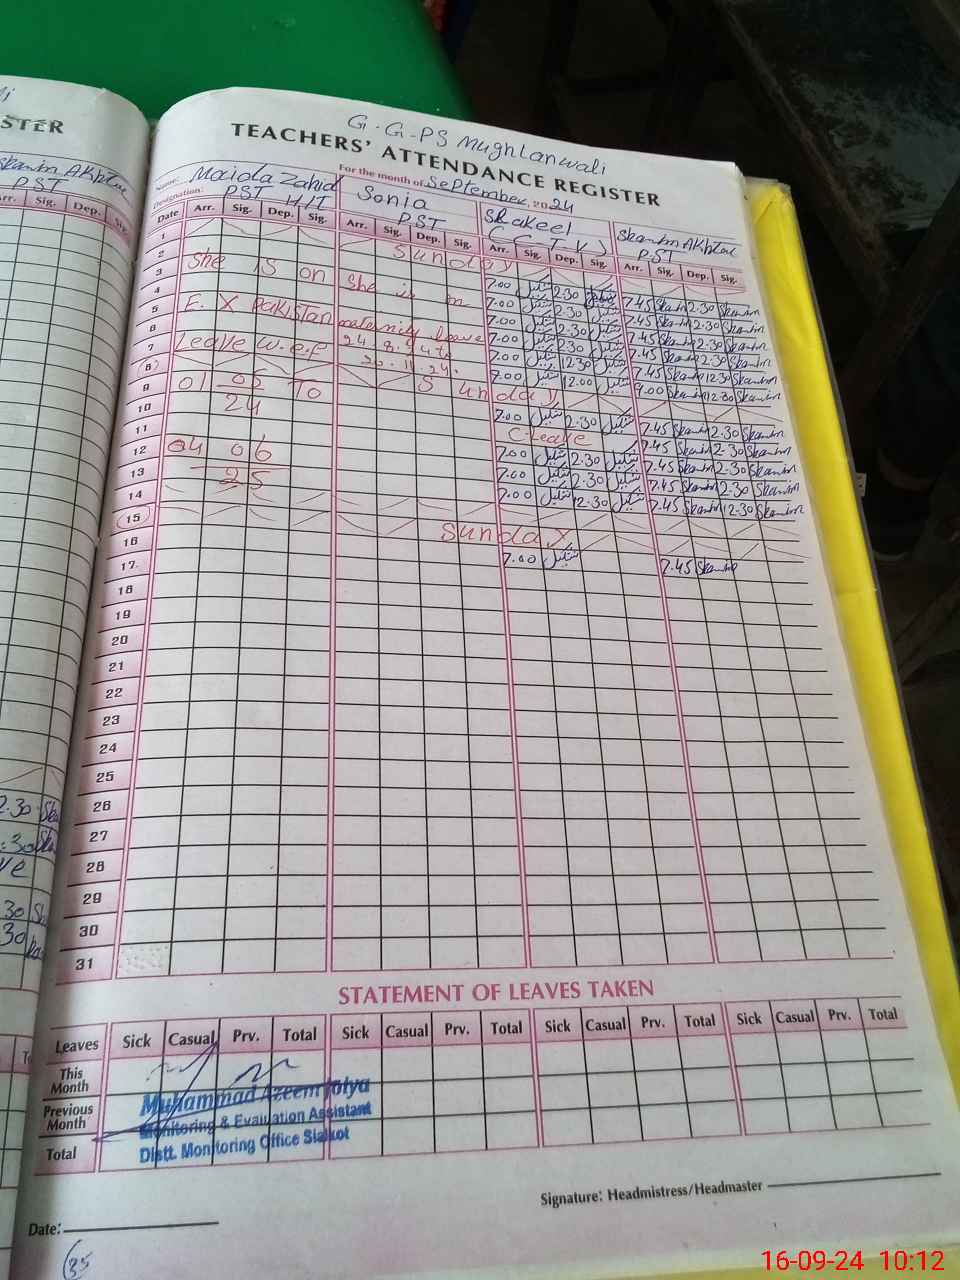 G.G.PS Mughlanwali
TEACHERS' ATTENDANCE REGISTER
For the month of September, 2024
Name: Maida Zahid
Sonia
Shakeel
Skantm Akhtar
Designation: PST H/T
PST
(C.T.V)
PST
Date Arr. Sig. Dep. Sig. Arr. Sig. Dep. Sig. Arr. Sig. Dep. Sig. Arr. Sig. Dep. Sig.
1 Sunday
2 7.00 شکیل 2.30 شکیل 7.45 Skantm 2.30 Skantm
3 She is on She is on 7.00 شکیل 2.30 شکیل 7.45 Skantm 2.30 Skantm
4 7.00 شکیل 2.30 شکیل 7.45 Skantm 2.30 Skantm
5 E. X Pakistan maternity leave 7.00 شکیل 2.30 شکیل 7.45 Skantm 2.30 Skantm
6 7.00 شکیل 12.30 شکیل 7.45 Skantm 12.30 Skantm
7 Leave w.e.f 7.00 شکیل 12.00 شکیل 9.00 Skantm 12.30 Skantm
8 Sunday
9 01 05 24 To 7.00 شکیل 2.30 شکیل 7.45 Skantm 2.30 Skantm
10 C-leave 7.45 Skantm 2.30 Skantm
11 7.00 شکیل 2.30 شکیل 7.45 Skantm 2.30 Skantm
12 04 06 25 7.00 شکیل 2.30 شکیل 7.45 Skantm 2.30 Skantm
13 7.00 شکیل 12.30 شکیل 7.45 Skantm 12.30 Skantm
14
15 Sunday
16 7.00 شکیل 7.45 Skantm
17.
18
19
20
21
22
23
24
25
26
27
28
29
30
31
STATEMENT OF LEAVES TAKEN
Leaves Sick Casual Prv. Total Sick Casual Prv. Total Sick Casual Prv. Total Sick Casual Prv. Total
This Month
Previous Month
Total
Muhammad Azeem Joiya
Monitoring & Evaluation Assistant
Distt. Monitoring Office Sialkot
Signature: Headmistress/Headmaster
Date:
35
16-09-24 10:12